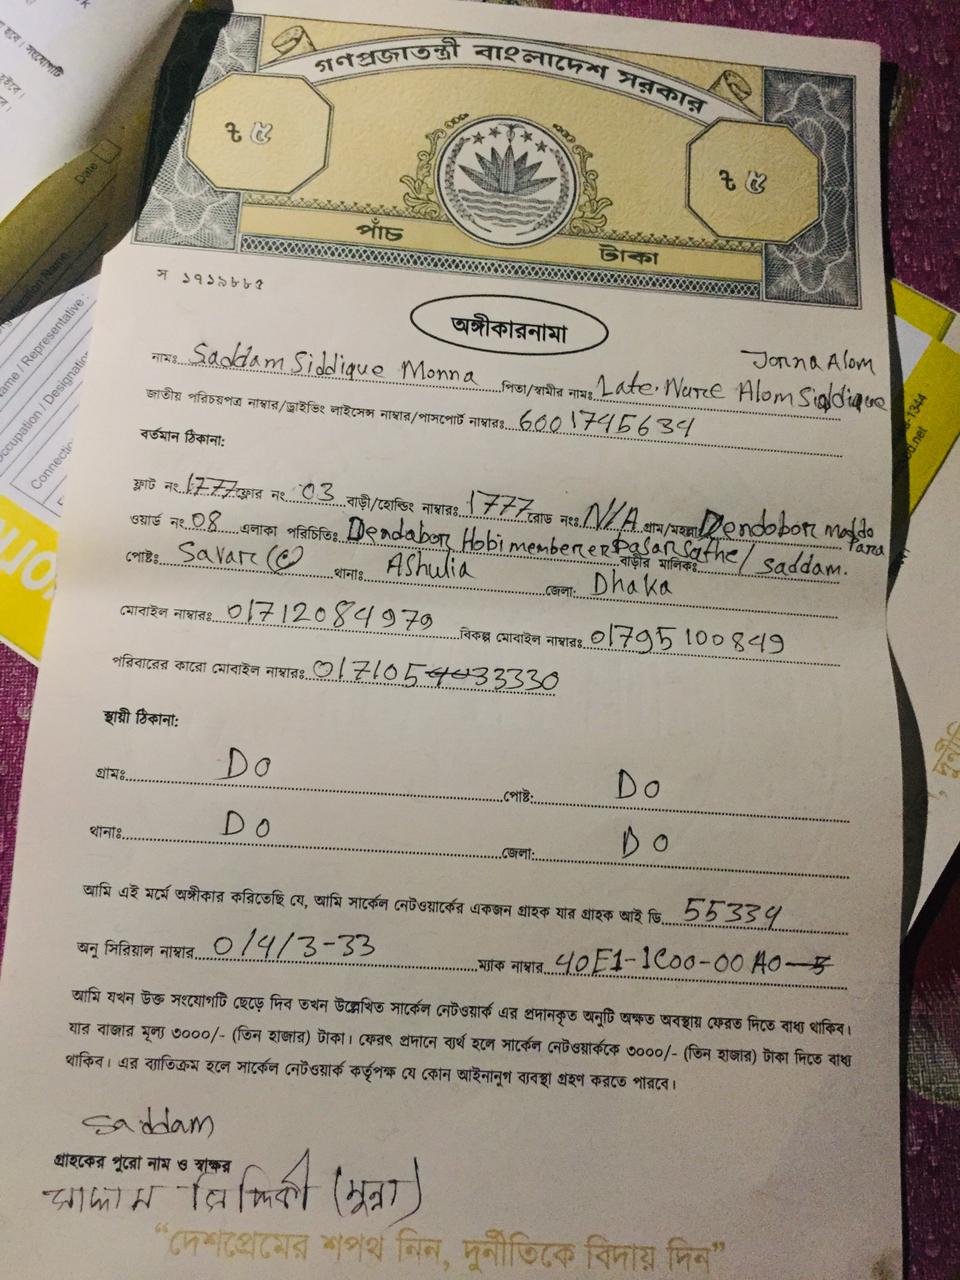 গণপ্রজাতন্ত্রী বাংলাদেশ সরকার
৳ ৫
৳ ৫
পাঁচ টাকা
স ১৭১৯৮৮৫
অঙ্গীকারনামা
Jonna Alom
নামঃ Saddam Siddique Monna পিতা/স্বামীর নামঃ Late. Alom Siddique
জাতীয় পরিচয়পত্র নাম্বার/ড্রাইভিং লাইসেন্স নাম্বার/পাসপোর্ট নাম্বারঃ 6001745634
বর্তমান ঠিকানা:
ফ্লাট নং 1777 ফ্লোর নং 03 বাড়ী/হোল্ডিং নাম্বারঃ 1777 রোড নংঃ N/A গ্রাম/মহল্লা Dendobor moddo Para
ওয়ার্ড নং 08 এলাকা পরিচিতিঃ Dendabor Hobi member er basar sathe/ saddam.
পোষ্টঃ Savar (c) থানাঃ Ashulia বাড়ীর মালিকঃ
জেলা: Dhaka
মোবাইল নাম্বারঃ 01712084979 বিকল্প মোবাইল নাম্বারঃ 01795100849
পরিবারের কারো মোবাইল নাম্বারঃ 33330
স্থায়ী ঠিকানা:
গ্রামঃ DO পোষ্ট: DO
থানাঃ DO জেলা: DO
আমি এই মর্মে অঙ্গীকার করিতেছি যে, আমি সার্কেল নেটওয়ার্কের একজন গ্রাহক যার গ্রাহক আই ডি 55334
অনু সিরিয়াল নাম্বার 0/4/3-33 ম্যাক নাম্বার 40E1-1C00-00A0
আমি যখন উক্ত সংযোগটি ছেড়ে দিব তখন উল্লেখিত সার্কেল নেটওয়ার্ক এর প্রদানকৃত অনুটি অক্ষত অবস্থায় ফেরত দিতে বাধ্য থাকিব।
যার বাজার মূল্য ৩০০০/- (তিন হাজার) টাকা। ফেরৎ প্রদানে ব্যর্থ হলে সার্কেল নেটওয়ার্ককে ৩০০০/- (তিন হাজার) টাকা দিতে বাধ্য
থাকিব। এর ব্যতিক্রম হলে সার্কেল নেটওয়ার্ক কর্তৃপক্ষ যে কোন আইনানুগ ব্যবস্থা গ্রহণ করতে পারবে।
Saddam
গ্রাহকের পুরো নাম ও স্বাক্ষর
সাদ্দাম সিদ্দিকী (মুন্না)
“দেশপ্রেমের শপথ নিন, দুর্নীতিকে বিদায় দিন”
Date
Name / Representative :
Occupation / Designation